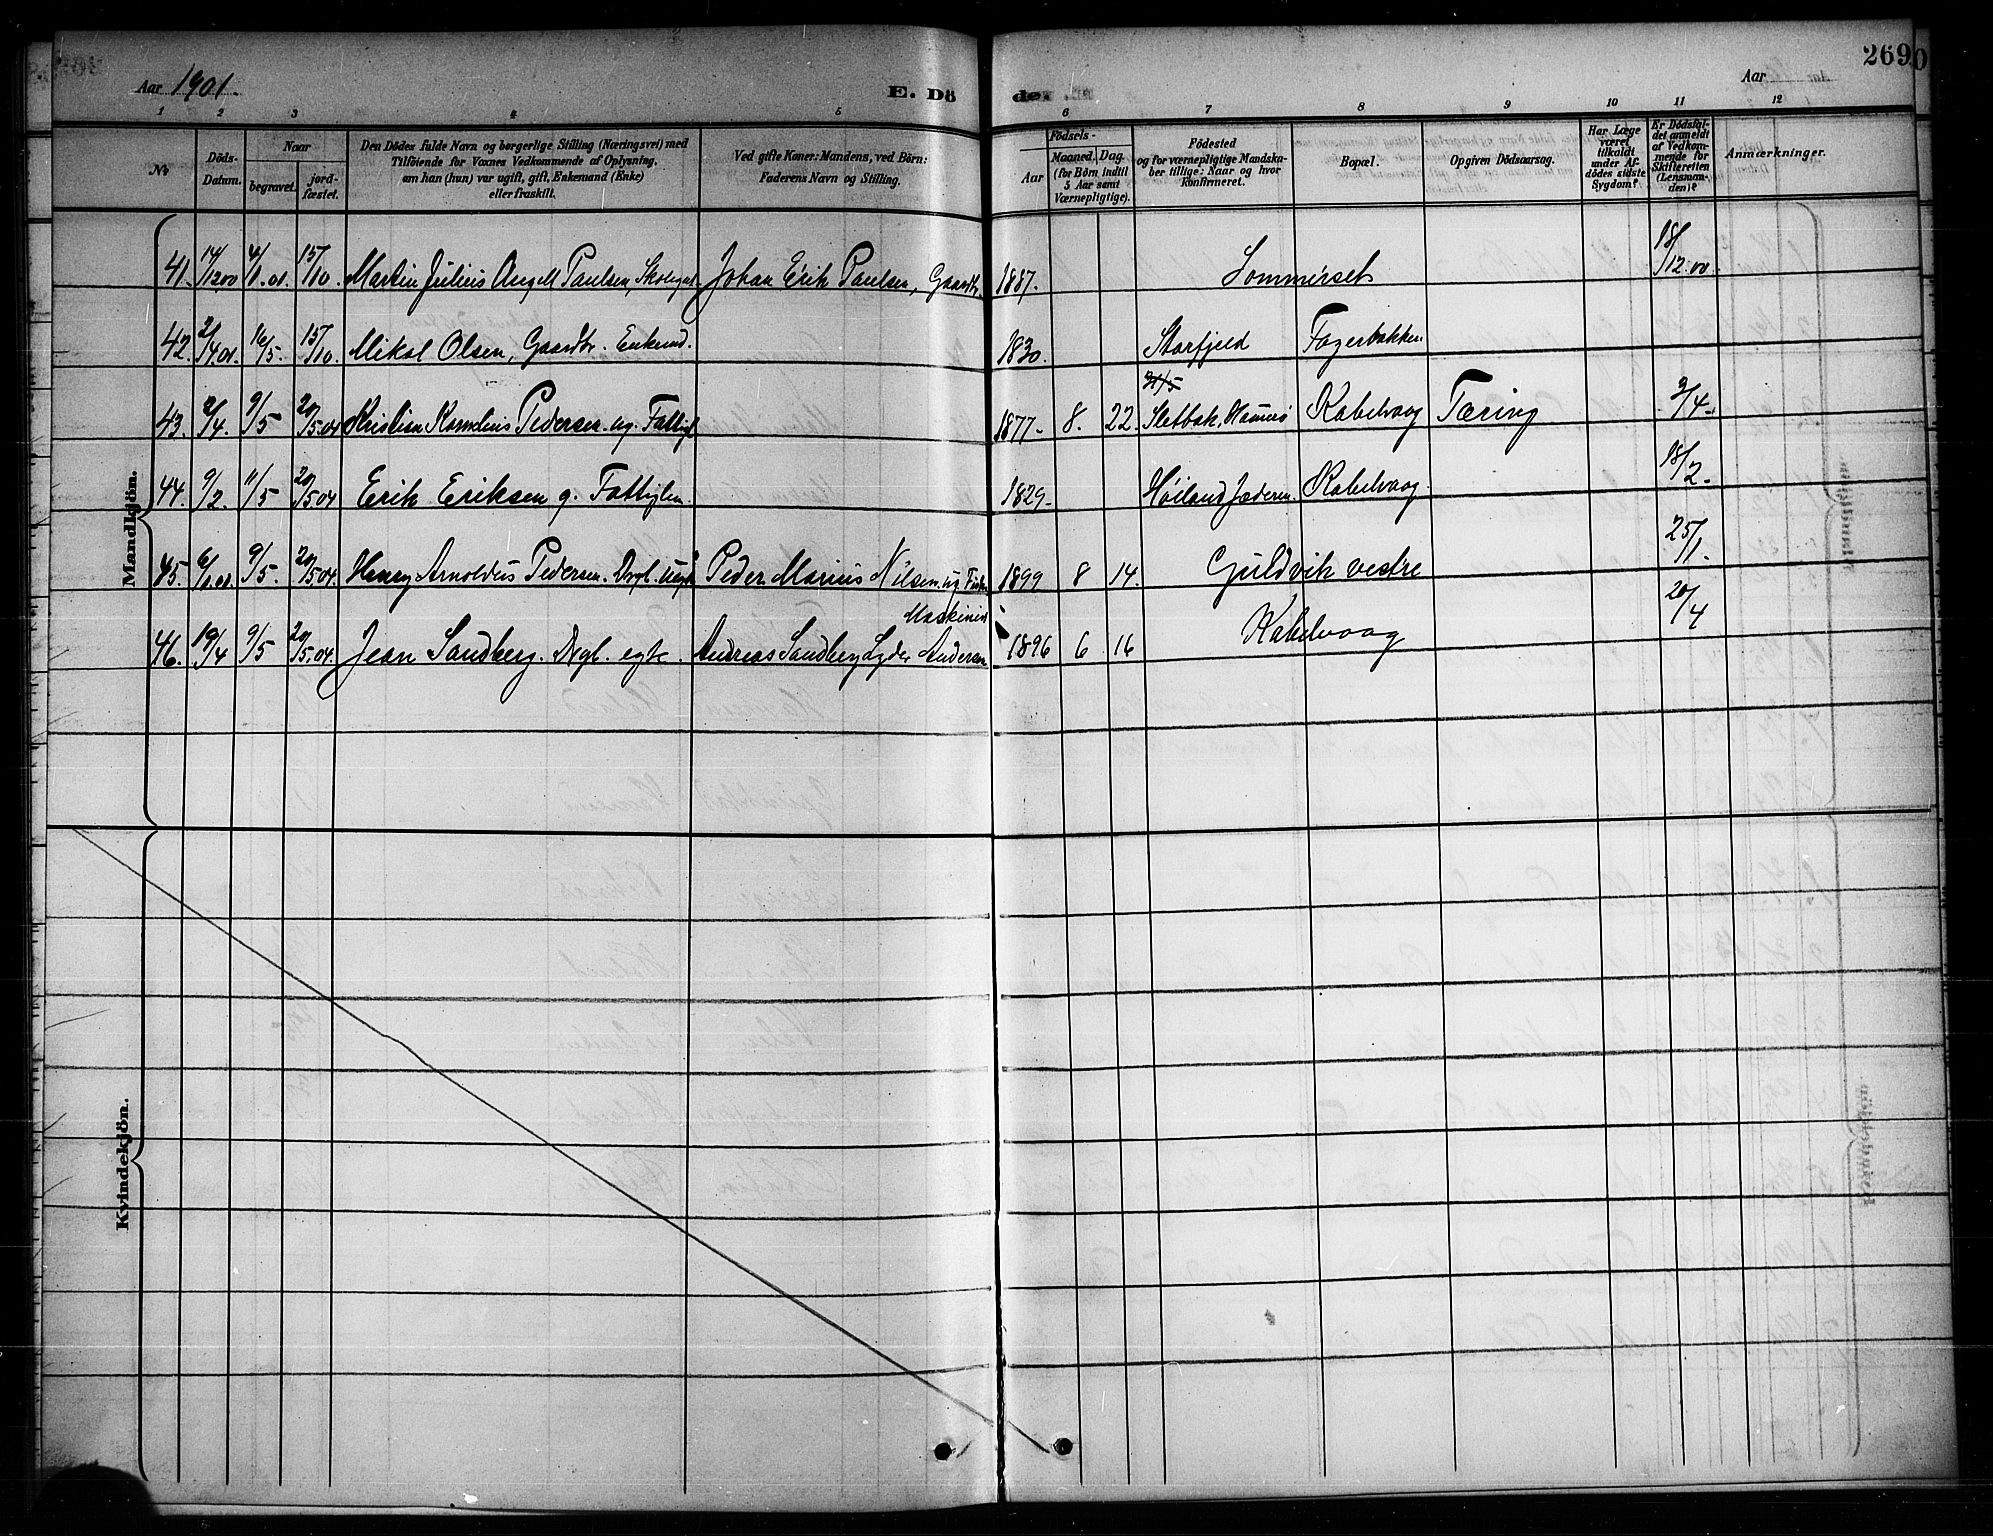 Aar 1901.
E. Dö
de.
Aar
269
1 2 3 4 5 6 7 8 9 10 11 12
No
Döds-Datum.
Naar
begravet.
jord-fæstet.
Den Dödes fulde Navn og borgerlige Stilling (Næringsvei) med
Tilföiende for Voxnes Vedkommende af Oplysning,
om han (hun) var ugift, gift, Enkemand (Enke)
eller fraskilt.
Ved gifte Koner: Mandens, ved Börn:
Faderens Navn og Stilling.
Födsels-
Aar
Maaned.
Dag.
(for Börn indtil
5 Aar samt
Værnepligtige).
Födested
og for værnepligtige Mandska-
ber tillige: Naar og hvor
konfirmeret.
Bopæl.
Opgiven Dödsaarsag.
Har Læge
været
tilkaldt
under Af-
dödes sidste
Sygdom?
Er Dödsfal-
det anmeldt
af Vedkom-
mende for
Skifteretten
(Lensman-
den)?
Anmærkninger.
Mandkjön.
41. 14/12 00 4/1 01. 15/10 Martin Julius Angell Paulsen, Johan Erik Paulsen, Gaardbr. 1887. Sommerset 18/12.00.
42. 2/4.01. 16/5. 15/10. Mikal Olsen, Gaardbr. Enkemd. 1830. Storfjeld Fagerbakken
31/5
43. 2/4. 9/5 20/5.04 Kristian Kornelius Pedersen ug. Fattigl 1877 8. 22. Sletbak, Hamerö Kabelvaag Tæring 2/4.
44. 9/2. 11/5 20/5 04 Erik Eriksen g. Fattiglem. 1829 Høiland Jæderen. Kabelvaag. 18/2.
45. 6/1.01. 9/5. 20/5 04. Henry Arnoldus Pedersen. Dgl. Peder Marius Nilsen, ug Fisker 1899 8 14. Guldvik vestre 25/1.
Maskinist
46. 19/4 9/5 20/5.04. Jean Sandberg. Dgl. egte. Andreas Sandberg Lyder Andersen 1896 6 16 Kabelvaag 20/4
Kvindekjön.